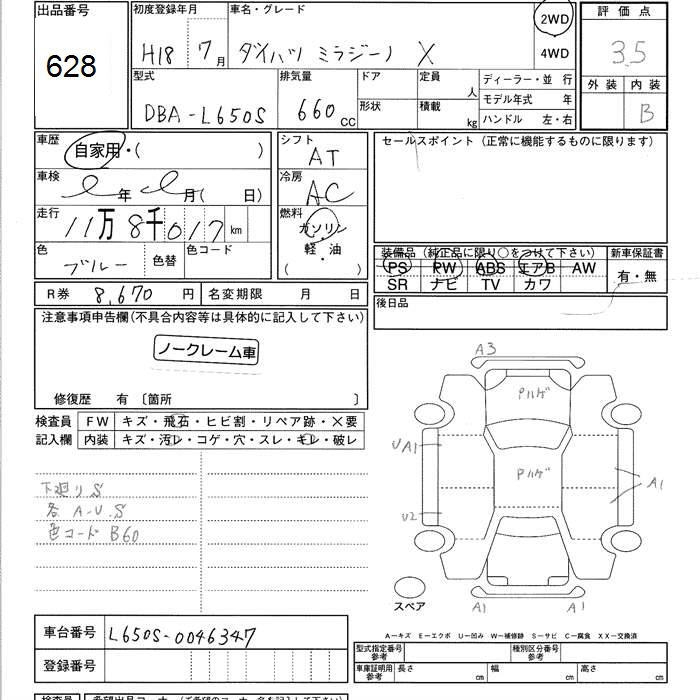 出品番号
628
初度登録年月
H18 7月
車名・グレード
ダイハツ ミラジーノ X
2WD
4WD
評価点
3.5
外装 内装
B
型式
DBA-L650S
排気量
660cc
ドア
形状
定員
人
積載
kg
ディーラー・並 行
モデル年式 年
ハンドル 左・右
車歴
自家用・( )
車検
年 月( 日)
走行
11万8千017km
色
ブルー
色替
色コード
シフト
AT
冷房
AC
燃料
ガソリン
軽・油
( ・ )
セールスポイント(正常に機能するものに限ります)
装備品(純正品に限り○をつけて下さい)
PS PW ABS エアB AW
SR ナビ TV カワ
新車保証書
有・無
後日品
R券 8,670円
名変期限 月 日
注意事項申告欄(不具合内容等は具体的に記入して下さい)
ノークレーム車
修復歴 有〔箇所 〕
検査員
記入欄
FW キズ・飛石・ヒビ割・リペア跡・×要
内装 キズ・汚レ・コゲ・穴・スレ・キレ・破レ
下廻りS
各A-U.S
色コードB60
A3
Pハゲ
UA1
Pハゲ
A1
U2
スペア
A1
A1
A―キズ E―エクボ U―凹み W―補修跡 S―サビ C―腐食 XX―交換済
車台番号
L650S-0046347
登録番号
型式指定番号
参考
種別区分番号
参考
車庫証明用
参考
長さ cm
幅 cm
高さ cm
検査員
希望出品コーナー(ご希望のコーナー名を記入下さい)